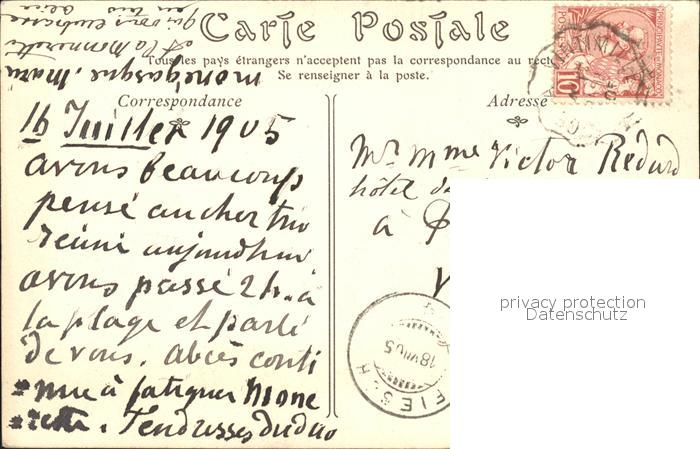 Carte Postale
Tous les pays étrangers n'acceptent pas la correspondance au recto
Se renseigner à la poste.
Correspondance
Adresse
16 Juillet 1905
avons beaucoup
pensé au cher trio
réuni aujourd'hui
avons passé 2 h. à
la plage et parlé
de vous. abcès conti
nue à fatiguer Mone
rette. Tendresses du duo
monégasque.
et la Monnerette
qui vous embrasse
Mr Mme Victor Redard
hôtel de
à
V
10c
VINTIMILLE
FIESCH
18 VII 05
privacy protection
Datenschutz